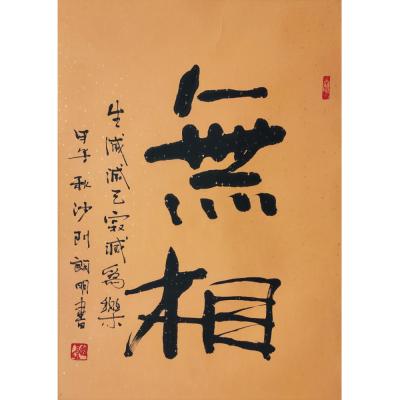 無相
生滅滅已寂滅為樂
甲午秋沙門顯明書